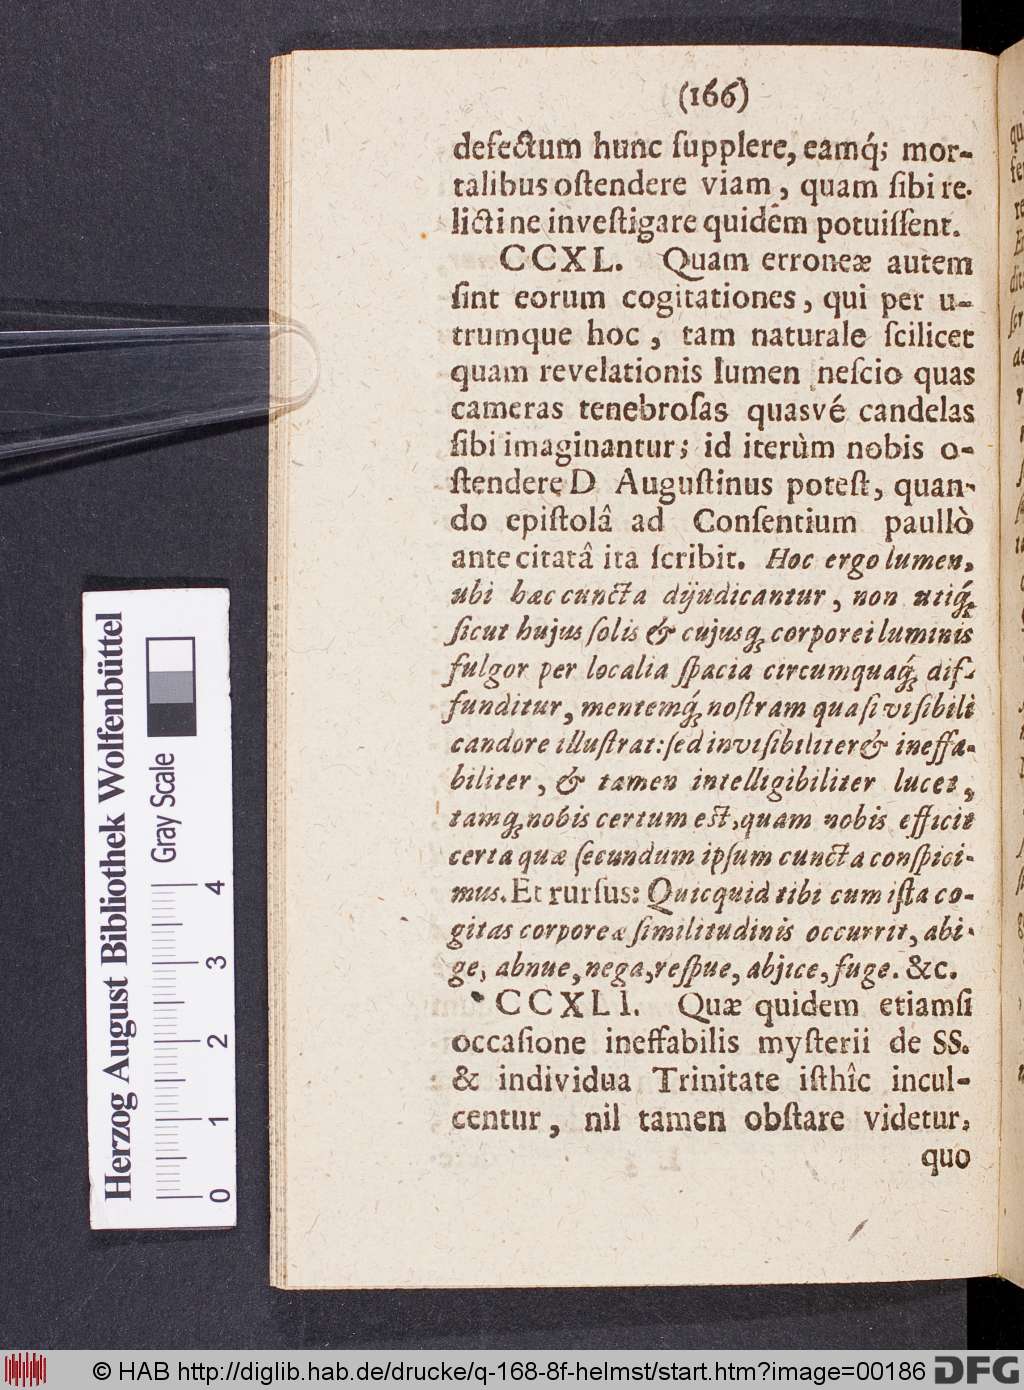 (166)
defectum hunc ſupplere, eamq́; mor-
talibus oſtendere viam, quam ſibi re-
licti ne inveſtigare quidem potuiſſent.
CCXL. Quam erroneæ autem
ſint eorum cogitationes, qui per u-
trumque hoc, tam naturale ſcilicet
quam revelationis lumen neſcio quas
cameras tenebroſas quasvé candelas
ſibi imaginantur; id iterùm nobis o-
ſtendere D Auguſtinus poteſt, quan-
do epiſtolâ ad Conſentium paullò
ante citatâ ita ſcribit. Hoc ergo lumen,
ubi hæc cuncta dijudicantur, non utiq́;
ſicut hujus ſolis & cujusq; corporei luminis
fulgor per localia ſpacia circumquaq́; dif-
funditur, mentemq́; noſtram quaſi viſibili
candore illuſtrat: ſed inviſibiliter & ineffa-
biliter, & tamen intelligibiliter lucet,
tamq; nobis certum eſt, quam nobis efficit
certa quæ ſecundum ipſum cuncta conſpici-
mus. Et rurſus: Quicquid tibi cum iſta co-
gitas corporeæ ſimilitudinis occurrit, abi-
ge, abnue, nega, reſpue, abjice, fuge. &c.
CCXLI. Quæ quidem etiamſi
occaſione ineffabilis myſterii de SS.
& individua Trinitate iſthîc incul-
centur, nil tamen obſtare videtur,
quo
Herzog August Bibliothek Wolfenbüttel
Gray Scale
0 1 2 3 4
© HAB http://diglib.hab.de/drucke/q-168-8f-helmst/start.htm?image=00186
DFG